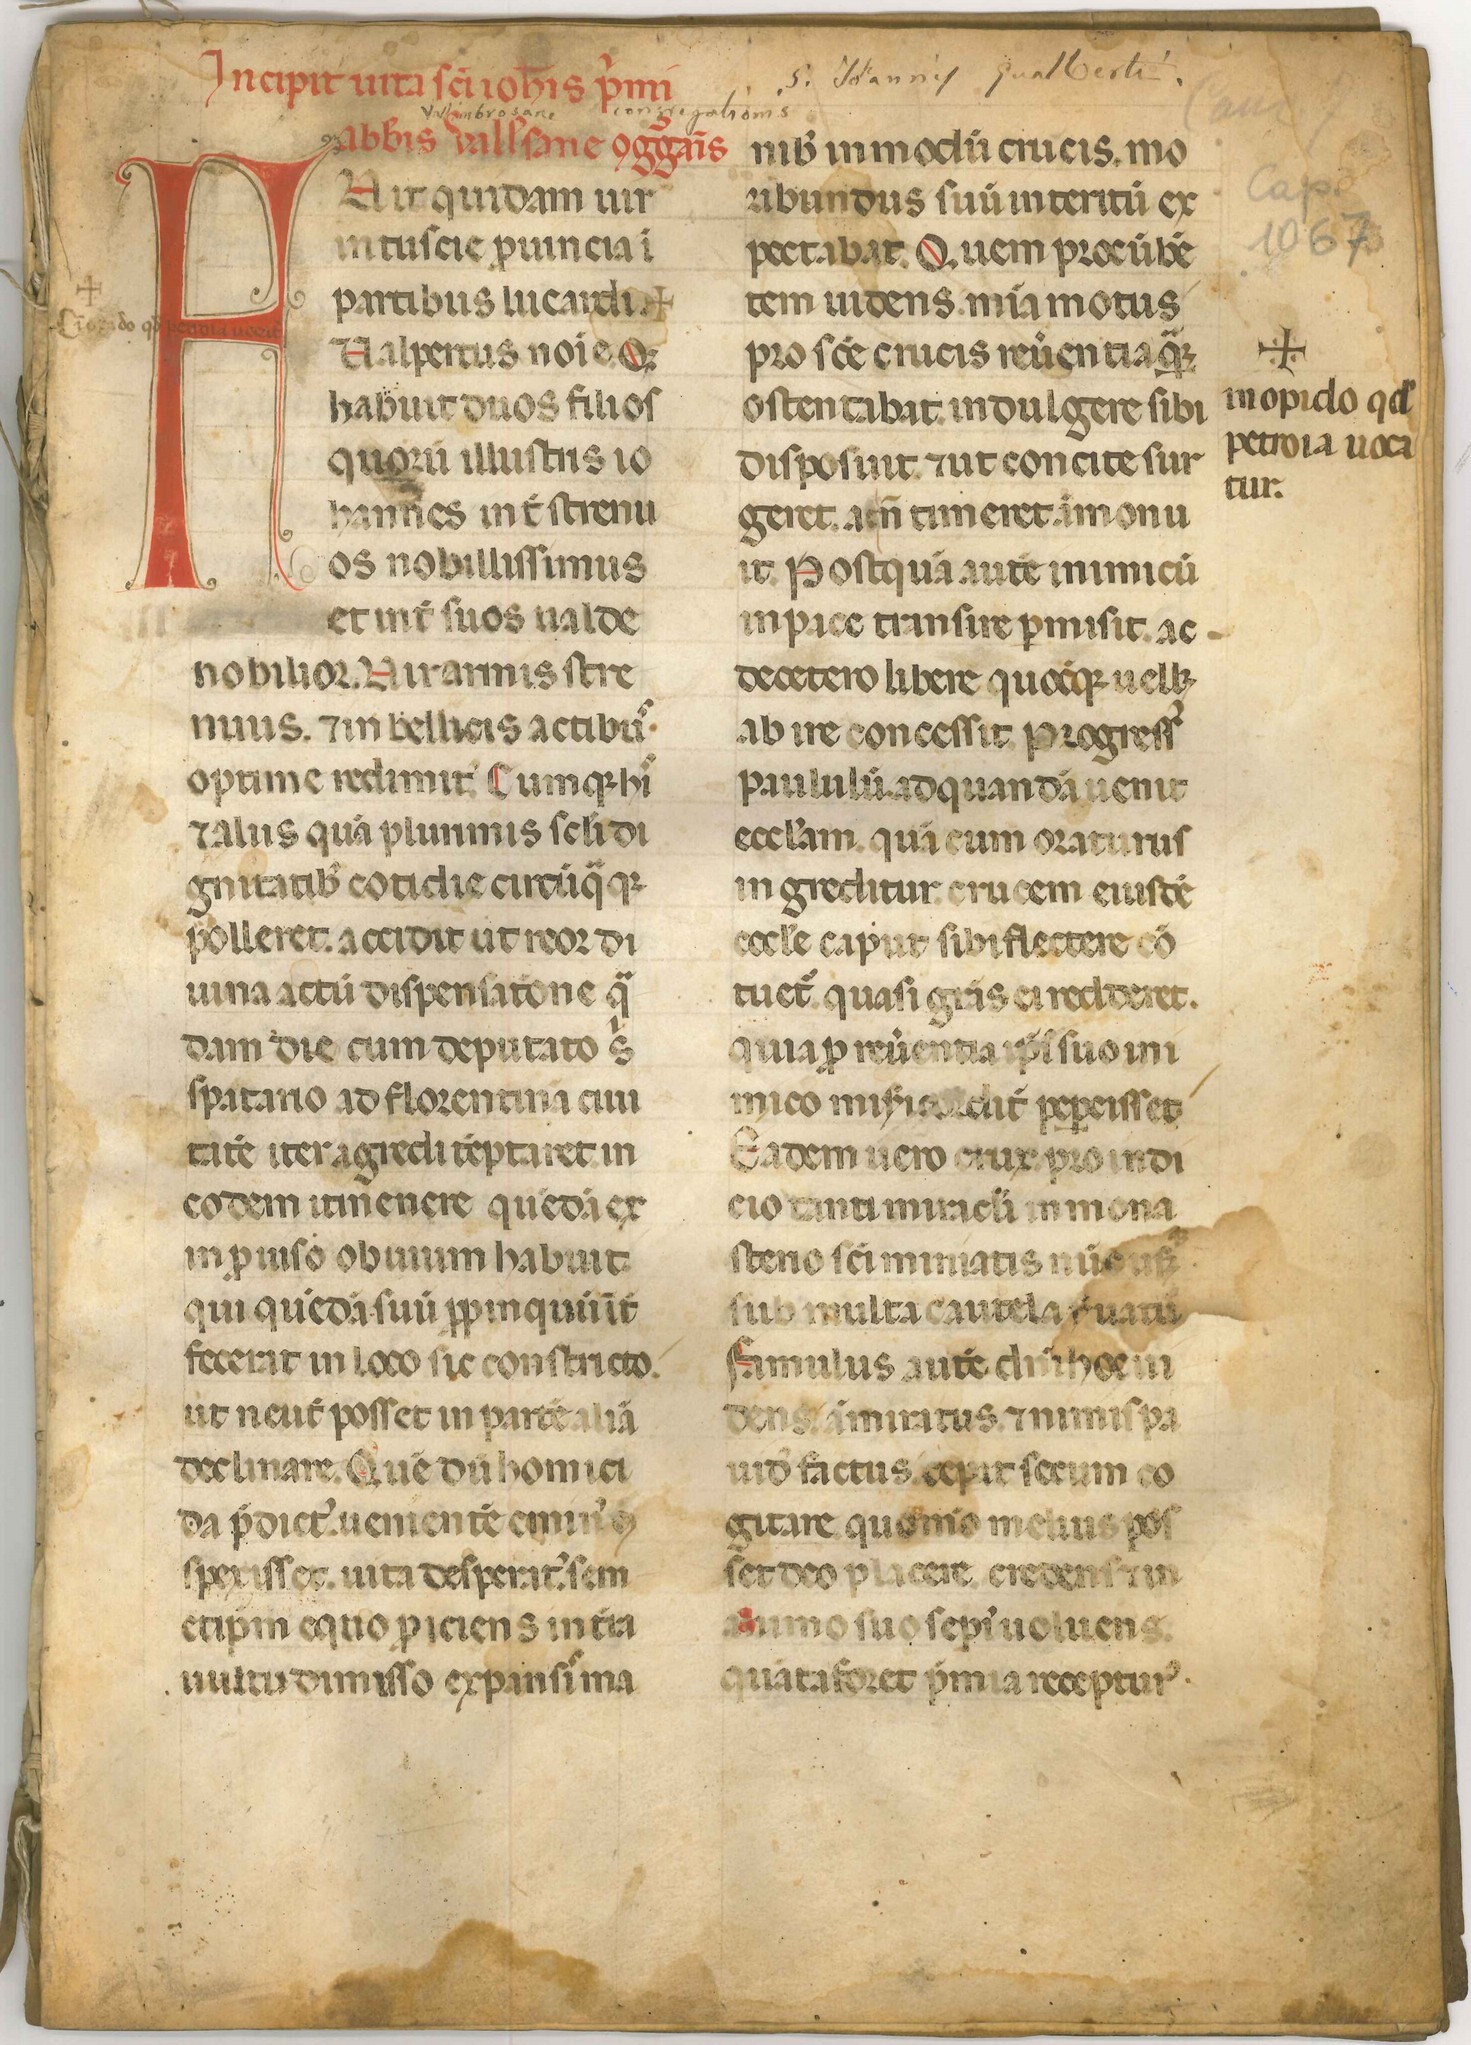 Incipit uita sci iohis pmi
s. Joannis Gualberti.
Vallimbrosane congregationis
abbis vallbsane 9ggais
Uit quidam uir
in tuscie puincia i
partibus lucardi ☩
Ualpertus noie. Q;
habuit duos filios
quorū illustris io
hannes int strenu
os nobillissimus
et int suos ualde
nobilior. Uir armis stre
nuus. ⁊ in bellicis actibus
optime redimit. Cumq; hi
⁊ aliis quā plurimis scli di
gnitatib cotidie circūq̄q;
polleret. accidit ut reor di
uina actū dispensatōne q̄
dam die cum deputato s
spatario ad florentina ciui
tatē iter agredi tēptaret. in
eodem itinenere quēdā ex
in puiso obuium habuit
qui quēdā suū ppinquū int
fecerat in loco sic constricto.
ut neut posset in partē aliā
declinare. Quē dū homici
da pdict' uenientē emin'
spexisset. uita desperat' sem
etipm equo piciens in tra
uultu dimisso expansis ma
nib in modū crucis. mo
ribundus suū interitū ex
pectabat. Quem procūbē
tem uidens. mia motus
pro sce crucis reuentia q̄;
ostentabat. indulgere sibi
disposuit. ⁊ ut concite sur
geret. a tn timeret. āmonu
it. Postquā autē inimicū
in pace transire pmisit. ac
decetero libere quocq; uell;
ab ire concessit. progress'
paululū. ad quandā uenit
ecclam. quā cum oraturus
ingreditur. crucem eiusdē
eccle caput sibi flectere cō
tuet'. quasi gras ei redderet.
quia p reuentia ipsi suo ini
mico misicordit pepcisset
Eadem uero crux pro indi
cio tanti miracli in mona
sterio sci miniatis nūc usq;
sub multa cautela suatū
Famulus autē dni hoc ui
dens. āmiratus. ⁊ nimis pa
uid' factus. cepit secum co
gitare quomō melius pos
set deo placere. credens ⁊ in
animo suo sepi' uoluens.
quāta foret pmia receptur'.
☩
in opido qd
petroia uoca
tur.
☩
Cap.
1067